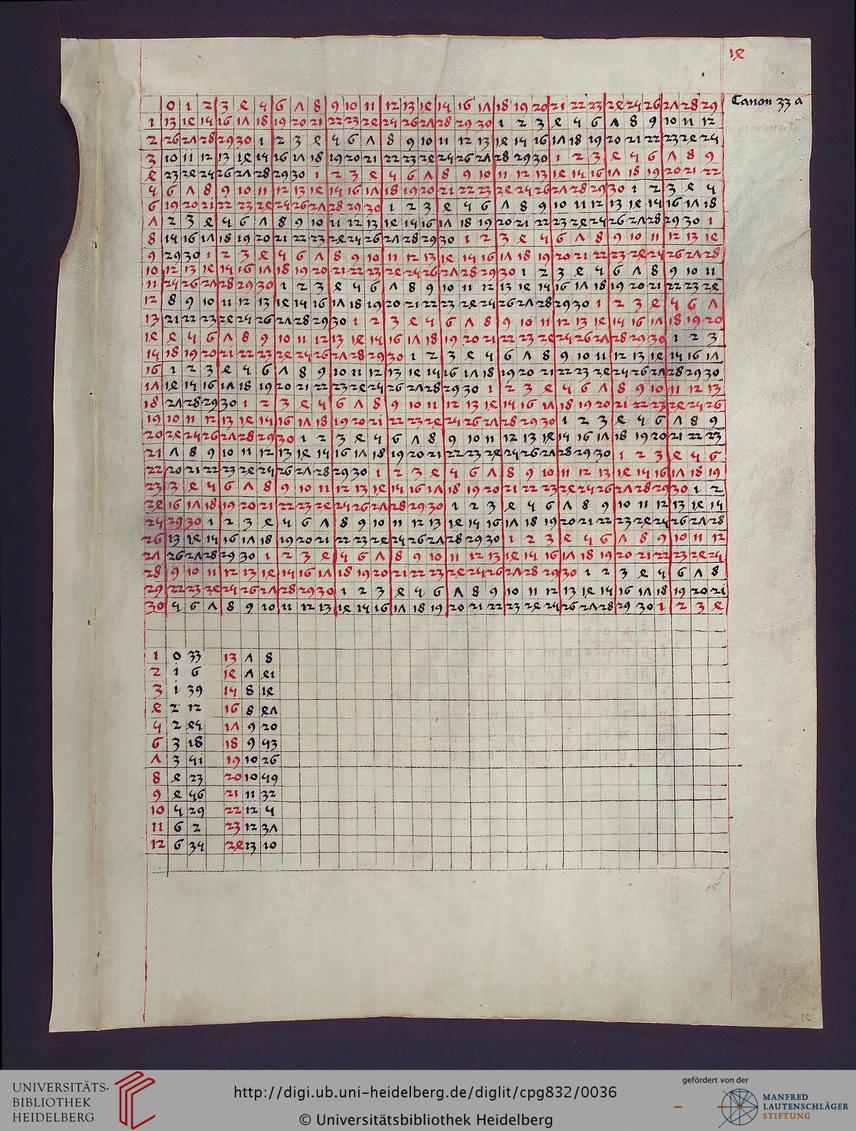 14
0 1 2 3 4 5 6 7 8 9 10 11 12 13 14 15 16 17 18 19 20 21 22 23 24 25 26 27 28 29 Canon 33 a
1 13 14 15 16 17 18 19 20 21 22 23 24 25 26 27 28 29 30 1 2 3 4 5 6 7 8 9 10 11 12
2 26 27 28 29 30 1 2 3 4 5 6 7 8 9 10 11 12 13 14 15 16 17 18 19 20 21 22 23 24 25
3 10 11 12 13 14 15 16 17 18 19 20 21 22 23 24 25 26 27 28 29 30 1 2 3 4 5 6 7 8 9
4 23 24 25 26 27 28 29 30 1 2 3 4 5 6 7 8 9 10 11 12 13 14 15 16 17 18 19 20 21 22
5 6 7 8 9 10 11 12 13 14 15 16 17 18 19 20 21 22 23 24 25 26 27 28 29 30 1 2 3 4 5
6 19 20 21 22 23 24 25 26 27 28 29 30 1 2 3 4 5 6 7 8 9 10 11 12 13 14 15 16 17 18
7 2 3 4 5 6 7 8 9 10 11 12 13 14 15 16 17 18 19 20 21 22 23 24 25 26 27 28 29 30 1
8 15 16 17 18 19 20 21 22 23 24 25 26 27 28 29 30 1 2 3 4 5 6 7 8 9 10 11 12 13 14
9 29 30 1 2 3 4 5 6 7 8 9 10 11 12 13 14 15 16 17 18 19 20 21 22 23 24 25 26 27 28
10 12 13 14 15 16 17 18 19 20 21 22 23 24 25 26 27 28 29 30 1 2 3 4 5 6 7 8 9 10 11
11 25 26 27 28 29 30 1 2 3 4 5 6 7 8 9 10 11 12 13 14 15 16 17 18 19 20 21 22 23 24
12 8 9 10 11 12 13 14 15 16 17 18 19 20 21 22 23 24 25 26 27 28 29 30 1 2 3 4 5 6 7
13 21 22 23 24 25 26 27 28 29 30 1 2 3 4 5 6 7 8 9 10 11 12 13 14 15 16 17 18 19 20
14 4 5 6 7 8 9 10 11 12 13 14 15 16 17 18 19 20 21 22 23 24 25 26 27 28 29 30 1 2 3
15 18 19 20 21 22 23 24 25 26 27 28 29 30 1 2 3 4 5 6 7 8 9 10 11 12 13 14 15 16 17
16 1 2 3 4 5 6 7 8 9 10 11 12 13 14 15 16 17 18 19 20 21 22 23 24 25 26 27 28 29 30
17 14 15 16 17 18 19 20 21 22 23 24 25 26 27 28 29 30 1 2 3 4 5 6 7 8 9 10 11 12 13
18 27 28 29 30 1 2 3 4 5 6 7 8 9 10 11 12 13 14 15 16 17 18 19 20 21 22 23 24 25 26
19 10 11 12 13 14 15 16 17 18 19 20 21 22 23 24 25 26 27 28 29 30 1 2 3 4 5 6 7 8 9
20 24 25 26 27 28 29 30 1 2 3 4 5 6 7 8 9 10 11 12 13 14 15 16 17 18 19 20 21 22 23
21 7 8 9 10 11 12 13 14 15 16 17 18 19 20 21 22 23 24 25 26 27 28 29 30 1 2 3 4 5 6
22 20 21 22 23 24 25 26 27 28 29 30 1 2 3 4 5 6 7 8 9 10 11 12 13 14 15 16 17 18 19
23 3 4 5 6 7 8 9 10 11 12 13 14 15 16 17 18 19 20 21 22 23 24 25 26 27 28 29 30 1 2
24 16 17 18 19 20 21 22 23 24 25 26 27 28 29 30 1 2 3 4 5 6 7 8 9 10 11 12 13 14 15
25 29 30 1 2 3 4 5 6 7 8 9 10 11 12 13 14 15 16 17 18 19 20 21 22 23 24 25 26 27 28
26 13 14 15 16 17 18 19 20 21 22 23 24 25 26 27 28 29 30 1 2 3 4 5 6 7 8 9 10 11 12
27 26 27 28 29 30 1 2 3 4 5 6 7 8 9 10 11 12 13 14 15 16 17 18 19 20 21 22 23 24 25
28 9 10 11 12 13 14 15 16 17 18 19 20 21 22 23 24 25 26 27 28 29 30 1 2 3 4 5 6 7 8
29 22 23 24 25 26 27 28 29 30 1 2 3 4 5 6 7 8 9 10 11 12 13 14 15 16 17 18 19 20 21
30 5 6 7 8 9 10 11 12 13 14 15 16 17 18 19 20 21 22 23 24 25 26 27 28 29 30 1 2 3 4
1 0 33 13 7 8
2 1 6 14 7 41
3 1 39 15 8 14
4 2 12 16 8 47
5 2 45 17 9 20
6 3 18 18 9 53
7 3 51 19 10 26
8 4 23 20 10 59
9 4 56 21 11 32
10 5 29 22 12 5
11 6 2 23 12 37
12 6 35 24 13 10
14
UNIVERSITÄTS-
BIBLIOTHEK
HEIDELBERG
http://digi.ub.uni-heidelberg.de/diglit/cpg832/0036
© Universitätsbibliothek Heidelberg
gefördert von der
MANFRED
LAUTENSCHLÄGER
STIFTUNG